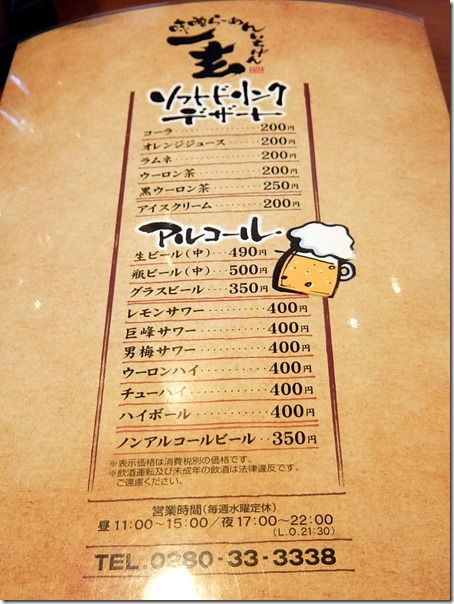 味噌らーめん
いちげん
一玄
ソフトドリンク
デザート
コーラ………200円
オレンジジュース……200円
ラムネ………200円
ウーロン茶………200円
黒ウーロン茶………250円
アイスクリーム………200円
アルコール
生ビール(中)‥490円
瓶ビール(中)‥500円
グラスビール…350円
レモンサワー………400円
巨峰サワー………400円
男梅サワー………400円
ウーロンハイ………400円
チューハイ………400円
ハイボール………400円
ノンアルコールビール‥350円
※表示価格は消費税別の価格です。
※飲酒運転及び未成年の飲酒は法律違反です。
ご遠慮ください。
営業時間(毎週水曜定休)
昼11:00〜15:00/夜17:00〜22:00
(L.O.21:30)
TEL.0280-33-3338